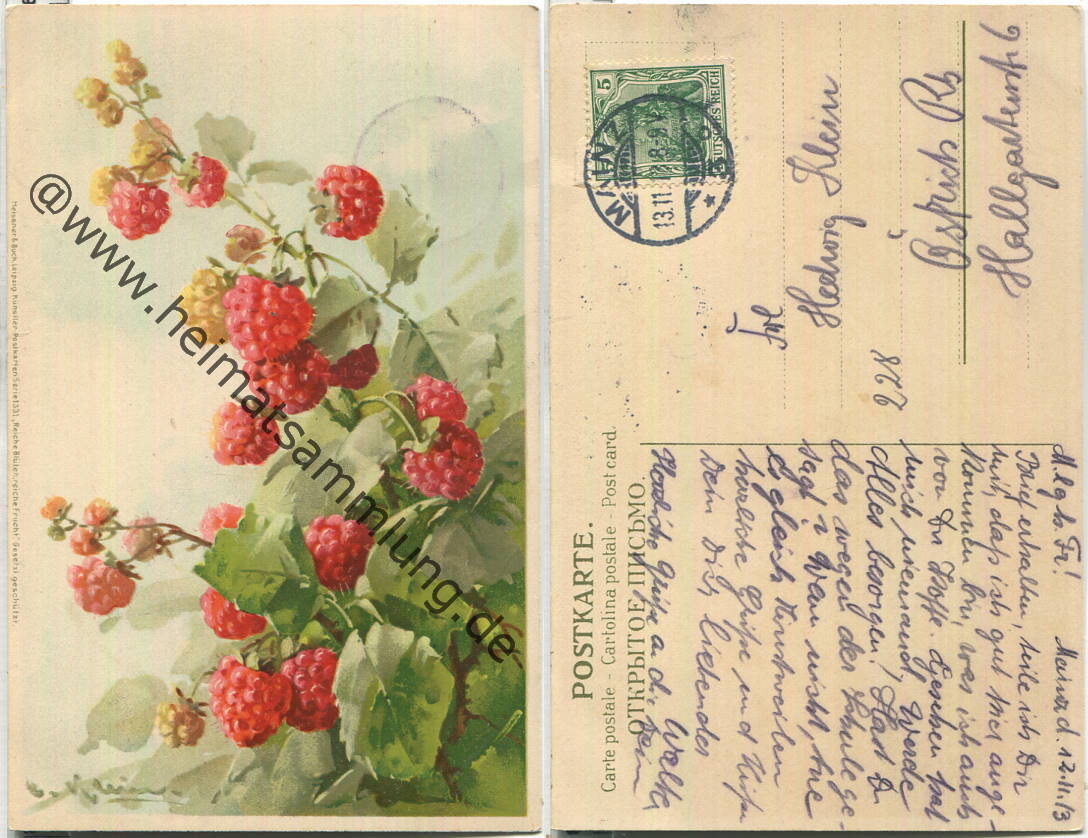 @www.heimatsammlung.de
Meissner & Buch, Leipzig Künstler-Postkarten Serie 1331 „Reiche Blüten, reiche Frucht" Gesetzl. geschützt.
C. Klein
DEUTSCHES REICH
5
MAINZ
13.11
8-9
POSTKARTE.
Carte postale - Cartolina postale - Post card.
ОТКРЫТОЕ ПИСЬМО.
Frl
Hedwig Klein
866
Hallgarterstr. 6
M. lg. ta. Fr!
Mainz d. 12.11.13
Brief erhalten, teile ich Dir
mit, daß ich gut hier ange-
kommen bin, was ich auch
von Dir hoffe. Gesehen hat
mich niemand. Werde
Alles besorgen! Hast D
das wegen der Schule ge-
sagt? Wenn nicht, tue
es gleich.
herzliche Grüße und Küsse
Dein Dich liebender
Herzliche Grüße a. die Dein